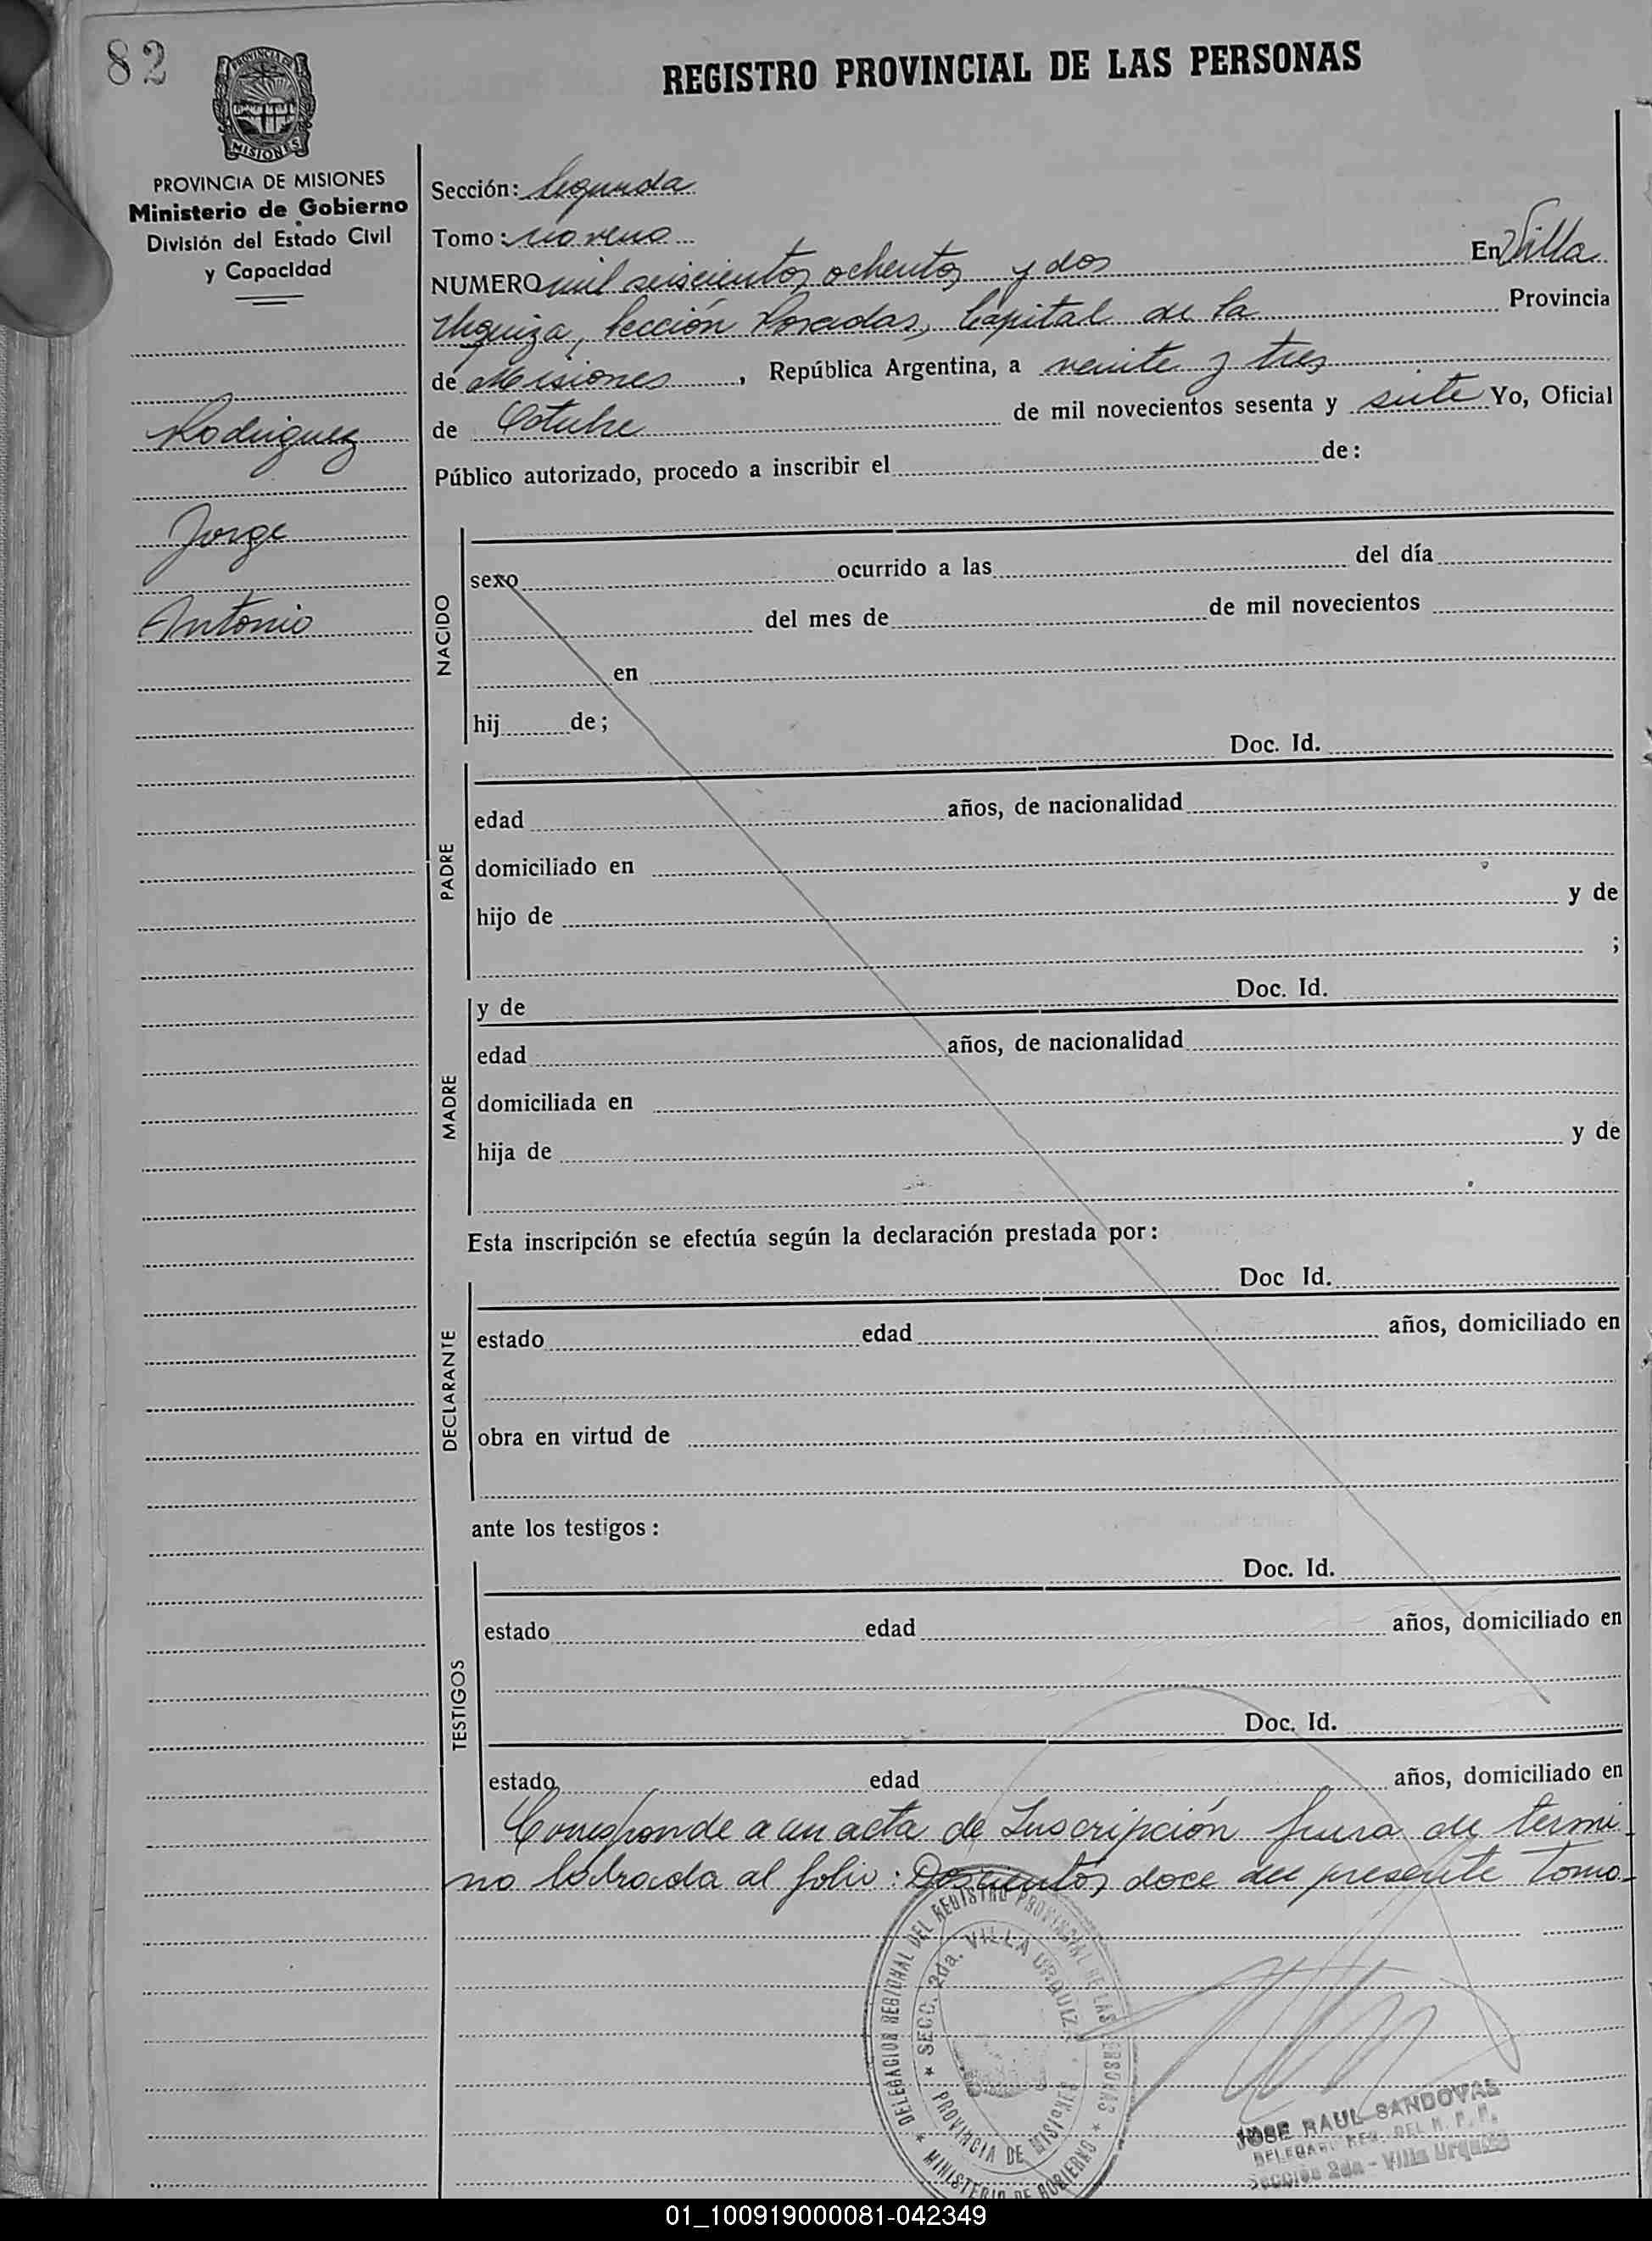 82
REGISTRO PROVINCIAL DE LAS PERSONAS
PROVINCIA DE MISIONES
MISIONES
PROVINCIA DE MISIONES
Ministerio de Gobierno
División del Estado Civil
y Capacidad
Rodriguez
Jorge
Antonio
Sección: Segunda
Tomo: noveno
NUMERO mil seiscientos ochentos y dos En Villa
Urquiza, Sección Posadas, Capital de la Provincia
de Misiones, República Argentina, a veinte y tres
de Octubre de mil novecientos sesenta y siete Yo, Oficial
Público autorizado, procedo a inscribir el de:
NACIDO
sexo ocurrido a las del día
del mes de de mil novecientos
en
hij de;
Doc. Id.
PADRE
edad años, de nacionalidad
domiciliado en
hijo de y de
;
MADRE
y de Doc. Id.
edad años, de nacionalidad
domiciliada en
hija de y de
Esta inscripción se efectúa según la declaración prestada por:
Doc Id.
DECLARANTE
estado edad años, domiciliado en
obra en virtud de
ante los testigos:
Doc. Id.
TESTIGOS
estado edad años, domiciliado en
Doc. Id.
estado edad años, domiciliado en
Corresponde a un acta de Inscripción fuera de termi
no labrada al folio: Doscientos doce del presente tomo-
DELEGACION REGIONAL DEL REGISTRO PROVINCIAL DE LAS PERSONAS
* MINISTERIO DE GOBIERNO *
* SECC. 2da. VILLA URQUIZA
PROVINCIA DE MISIONES
JOSE RAUL SANDOVAL
DELEGADO REG. DEL R. P. P.
Sección 2da - Villa Urquiza
01_100919000081-042349